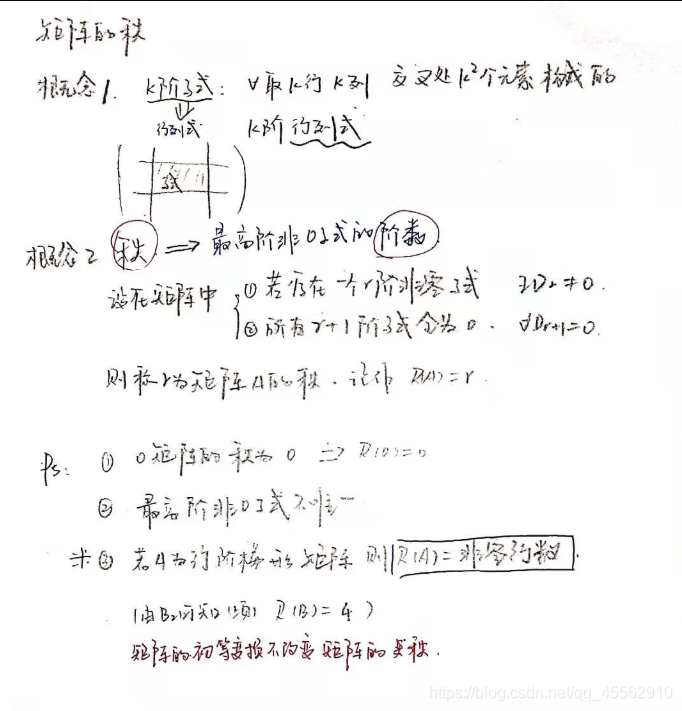 矩阵的秩
概念1. K阶子式: ∀取K行K列 交叉处K²个元素构成的
行列式 K阶行列式
子式
概念2 秩 ⇒ 最高阶非0子式的阶数
设在矩阵中 ① 若存在一个r阶非零子式 ∃Dr≠0.
② 所有r+1阶子式全为0. ∀Dr+1=0.
则称r为矩阵A的秩. 记作 R(A)=r.
Ps: ① 0矩阵的秩为0 ⇒ R(0)=0
② 最高阶非0子式不唯一
※③ 若A为行阶梯形矩阵 则 R(A)=非零行数
(由B 可知 R(B)=4)
矩阵的初等变换不改变矩阵的秩.
https://blog.csdn.net/qq_45562910